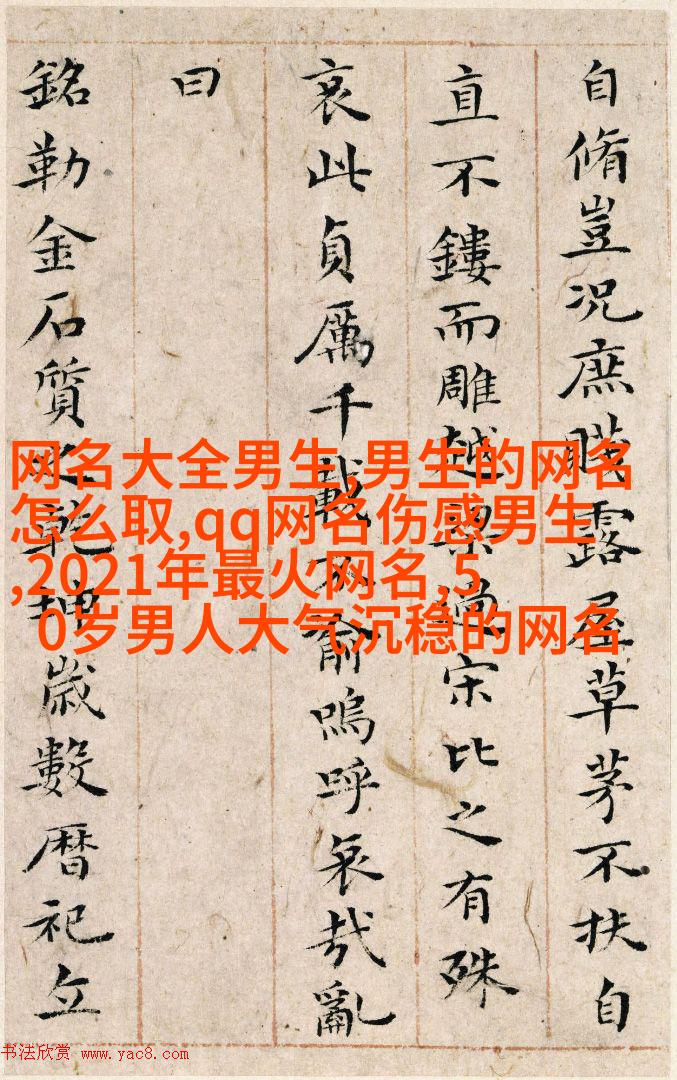 自脩豈況庶露草茅不扶自
直不鏤而雕越梁宋比之有殊
哀此貞厲千載不俞嗚呼哀哉亂
曰
銘勒金石質之乾坤歲數暦祀立
网名大全男生,男生的网名
怎么取,qq网名伤感男生
,2021年最火网名,5
0岁男人大气沉稳的网名
书法欣赏 www.yac8.com